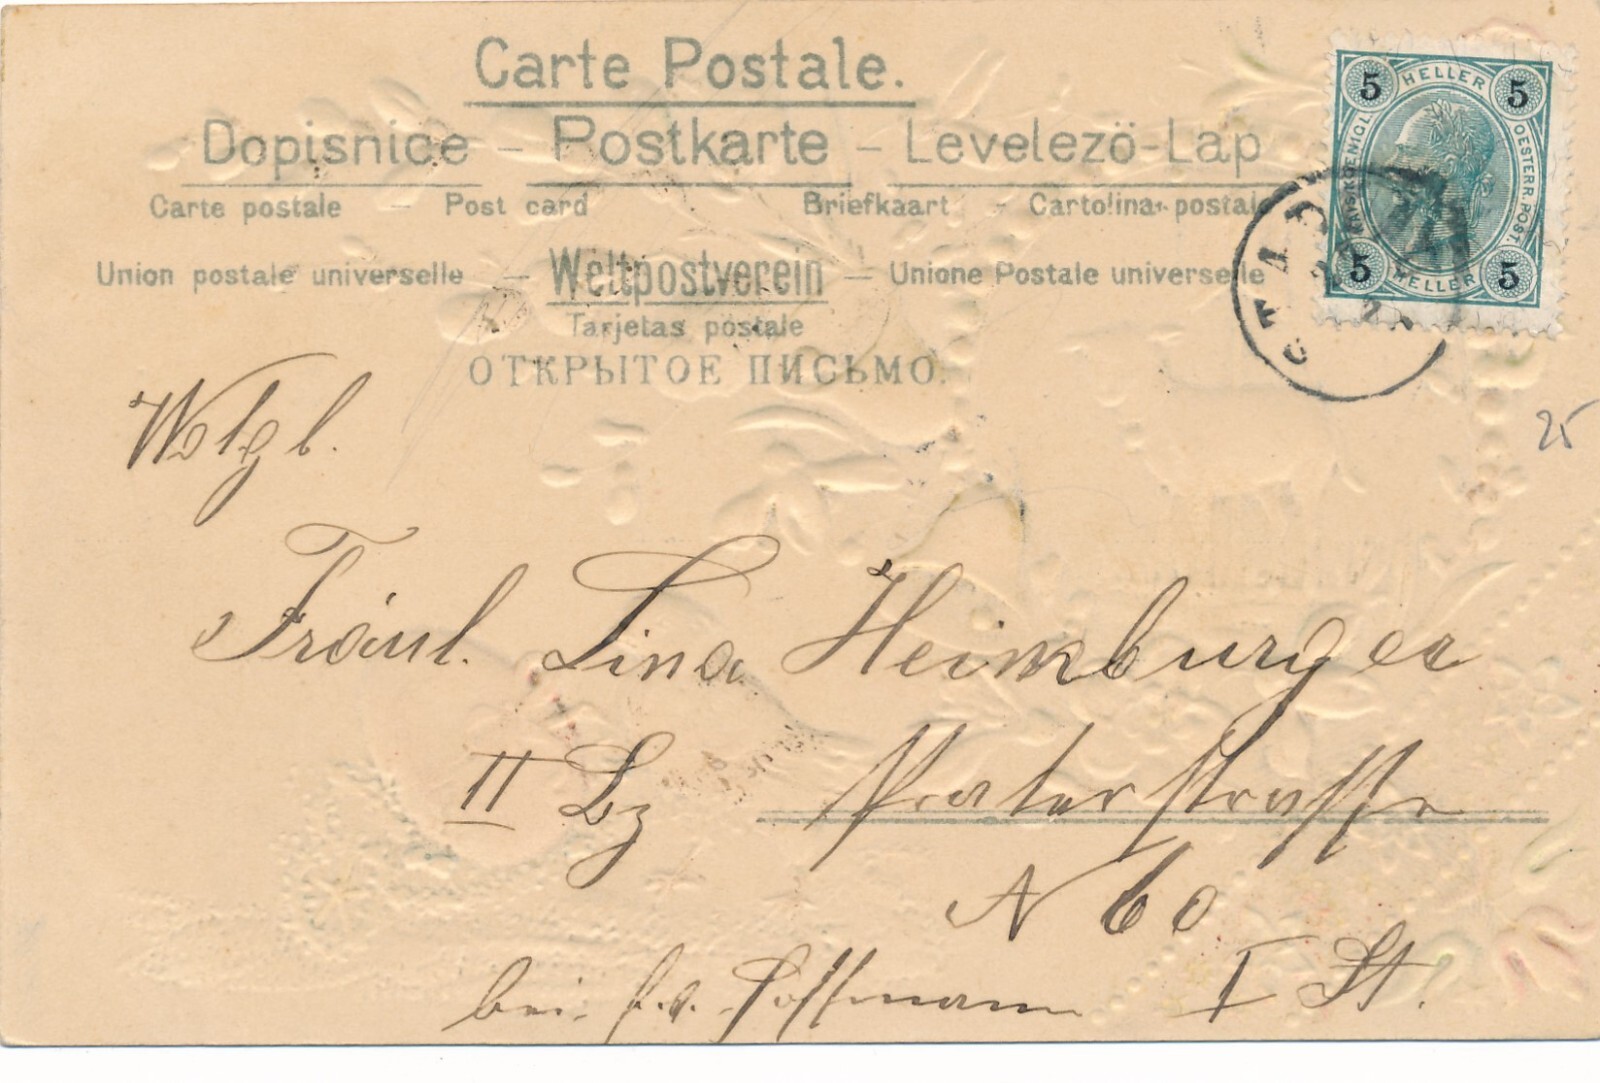 Carte Postale.
Dopisnice – Postkarte – Levelezö-Lap
Carte postale – Post card Briefkaart – Cartolina postale
Union postale universelle – Weltpostverein – Unione Postale universelle
Tarjetas postale
ОТКРЫТОЕ ПИСЬМО.
5 HELLER 5
KAISERL. KOENIGL. OESTERR. POST.
5 HELLER 5
STADT
25
Wolgb.
Fräul. Lina Heimburger
II Bz Praterstraße
N 60
bei Hoffmann I St.